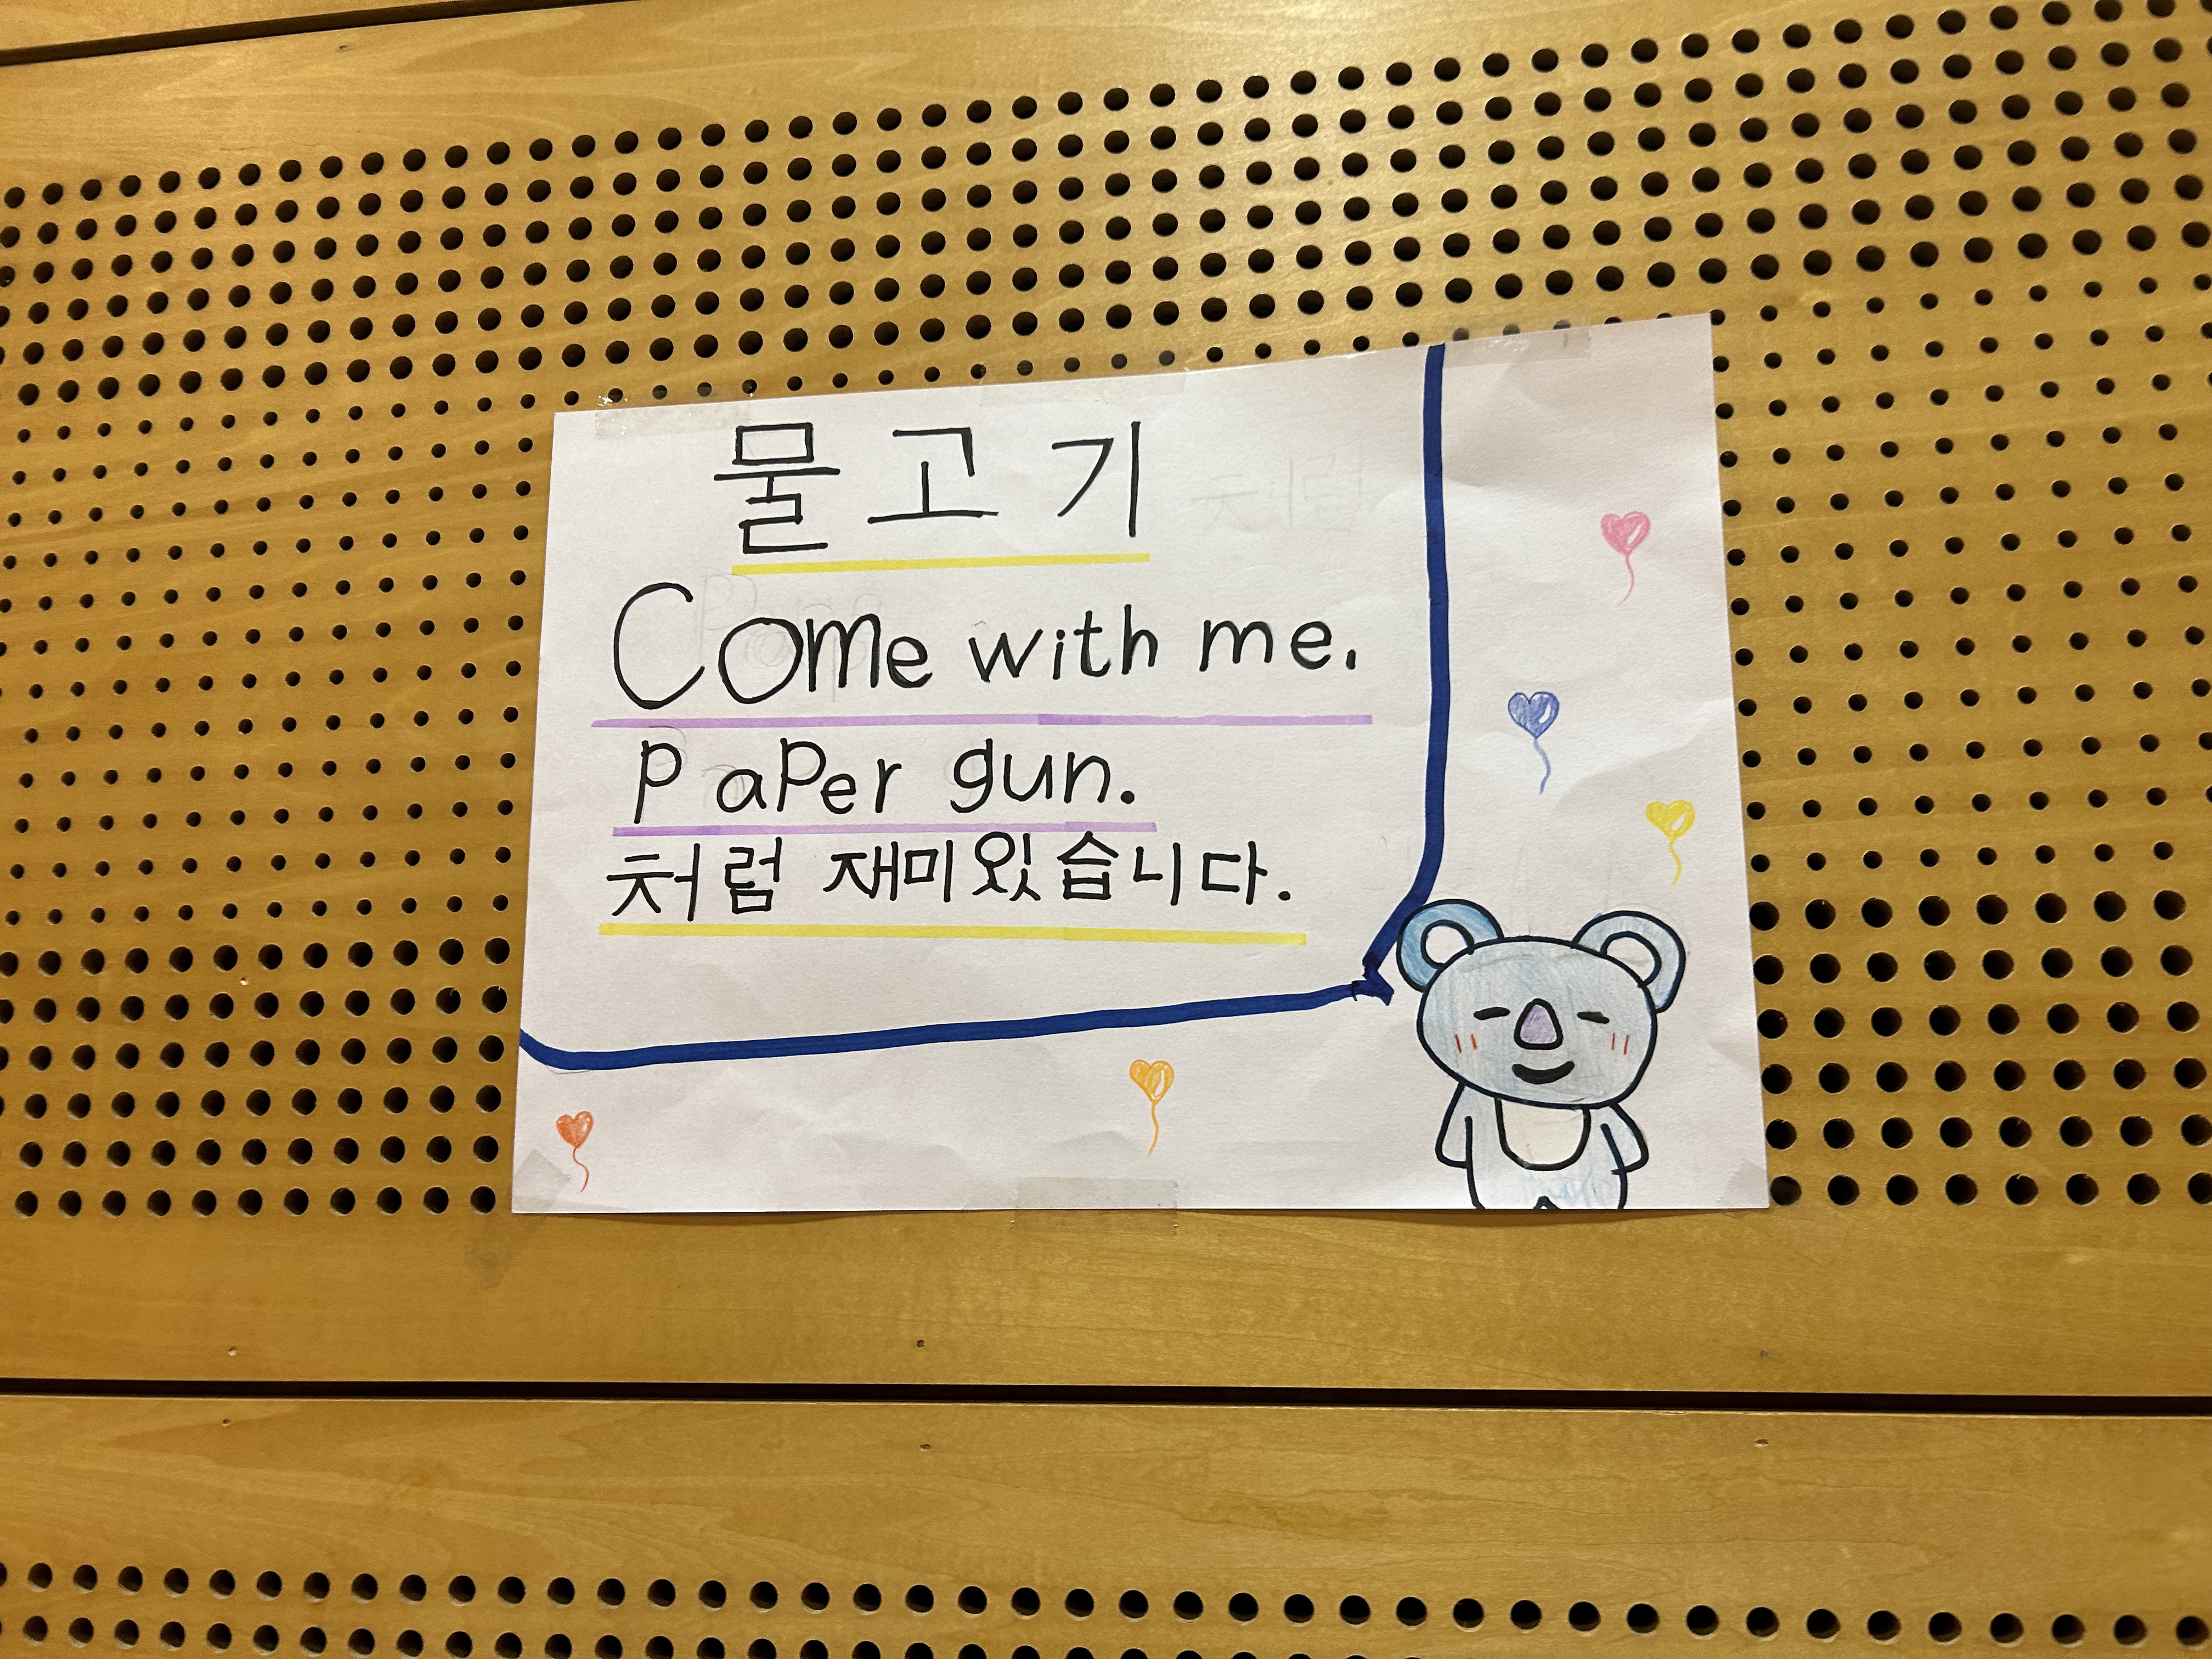 물고기
Come with me.
Paper gun.
처럼 재미있습니다.